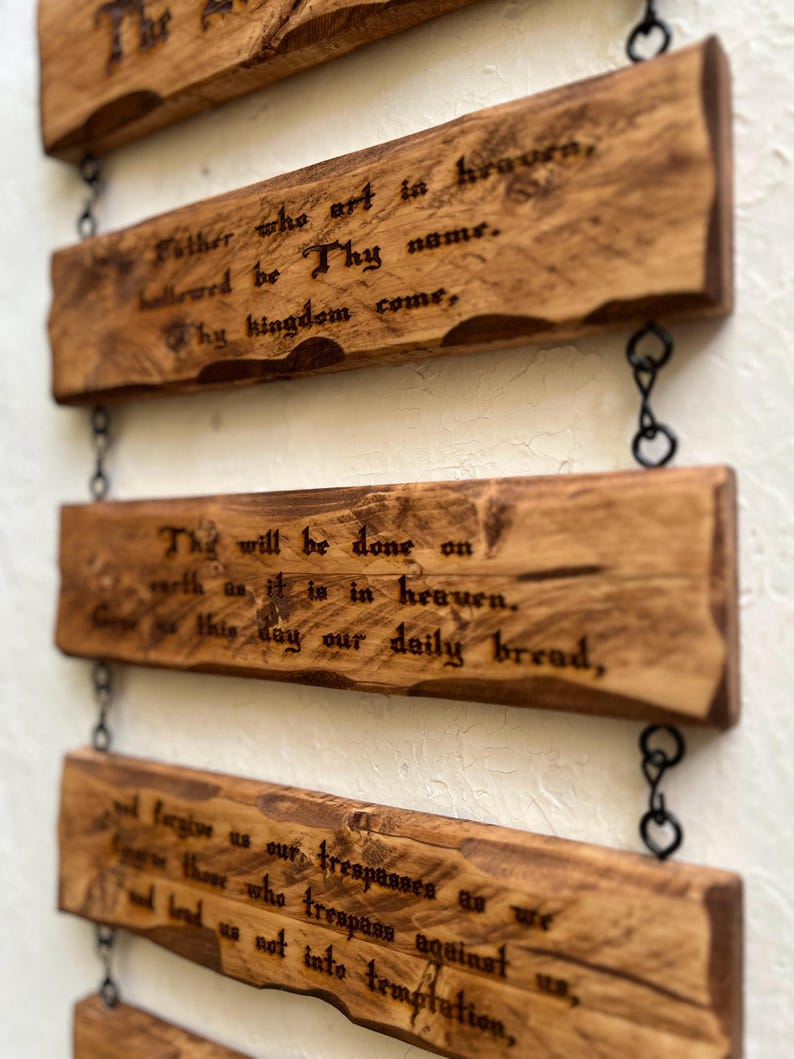 The
Father who art in heaven,
hallowed be Thy name.
Thy kingdom come,
Thy will be done on
earth as it is in heaven.
Give us this day our daily bread,
and forgive us our trespasses as we
forgive those who trespass against us,
and lead us not into temptation,